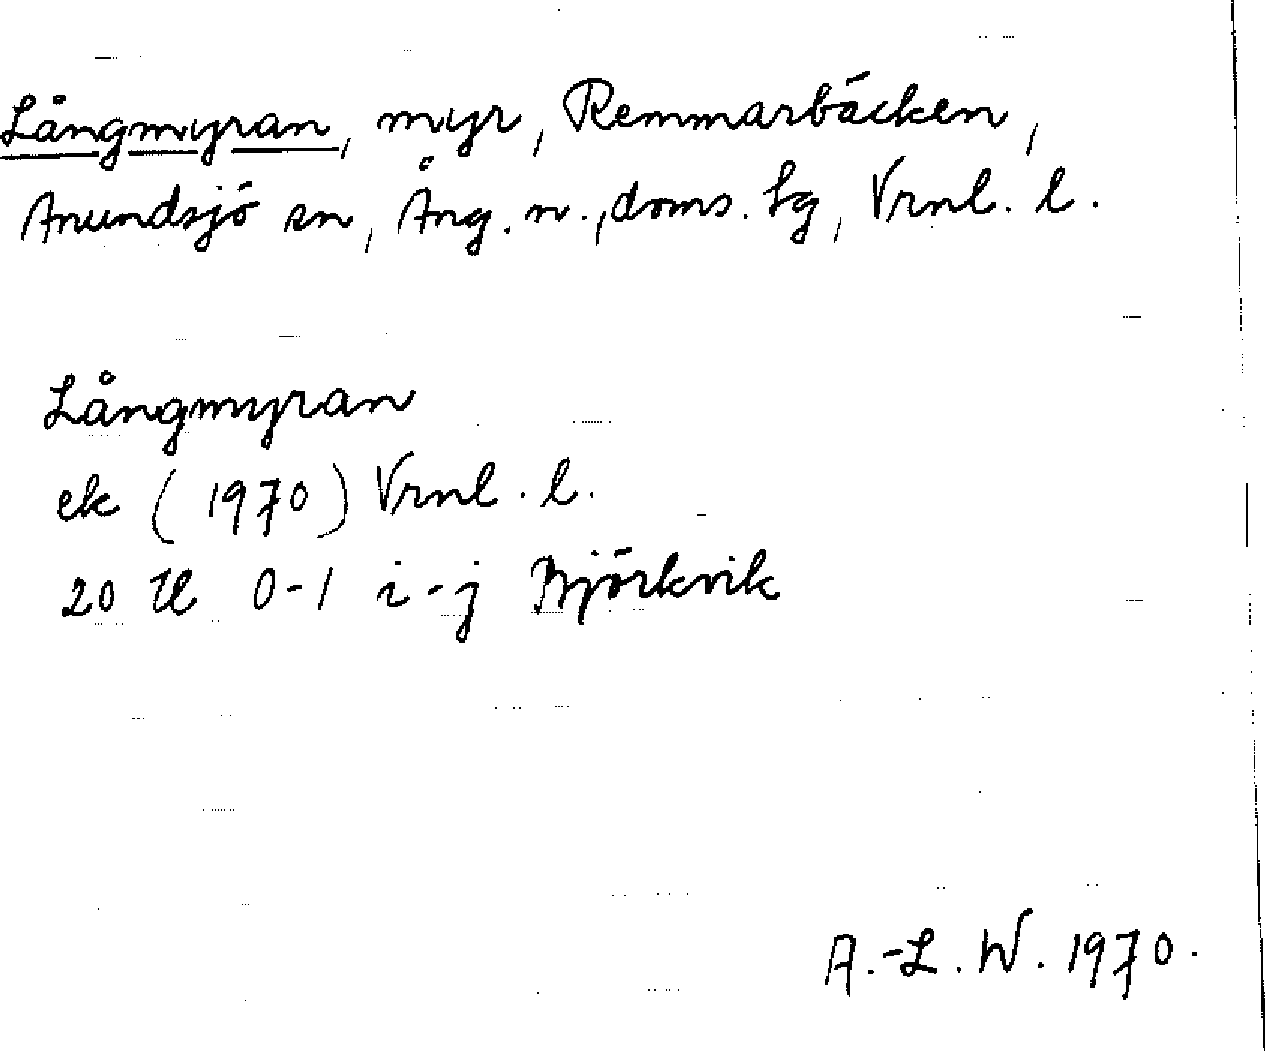 Långmyran, myr, Remmarbäcken,
Anundsjö sn, Ång. n., doms. lg, Vrnl. l.
Långmyran
ek (1970) Vrnl. l.
20 I l 0-1 i-j Björkvik
A.-L. W. 1970.